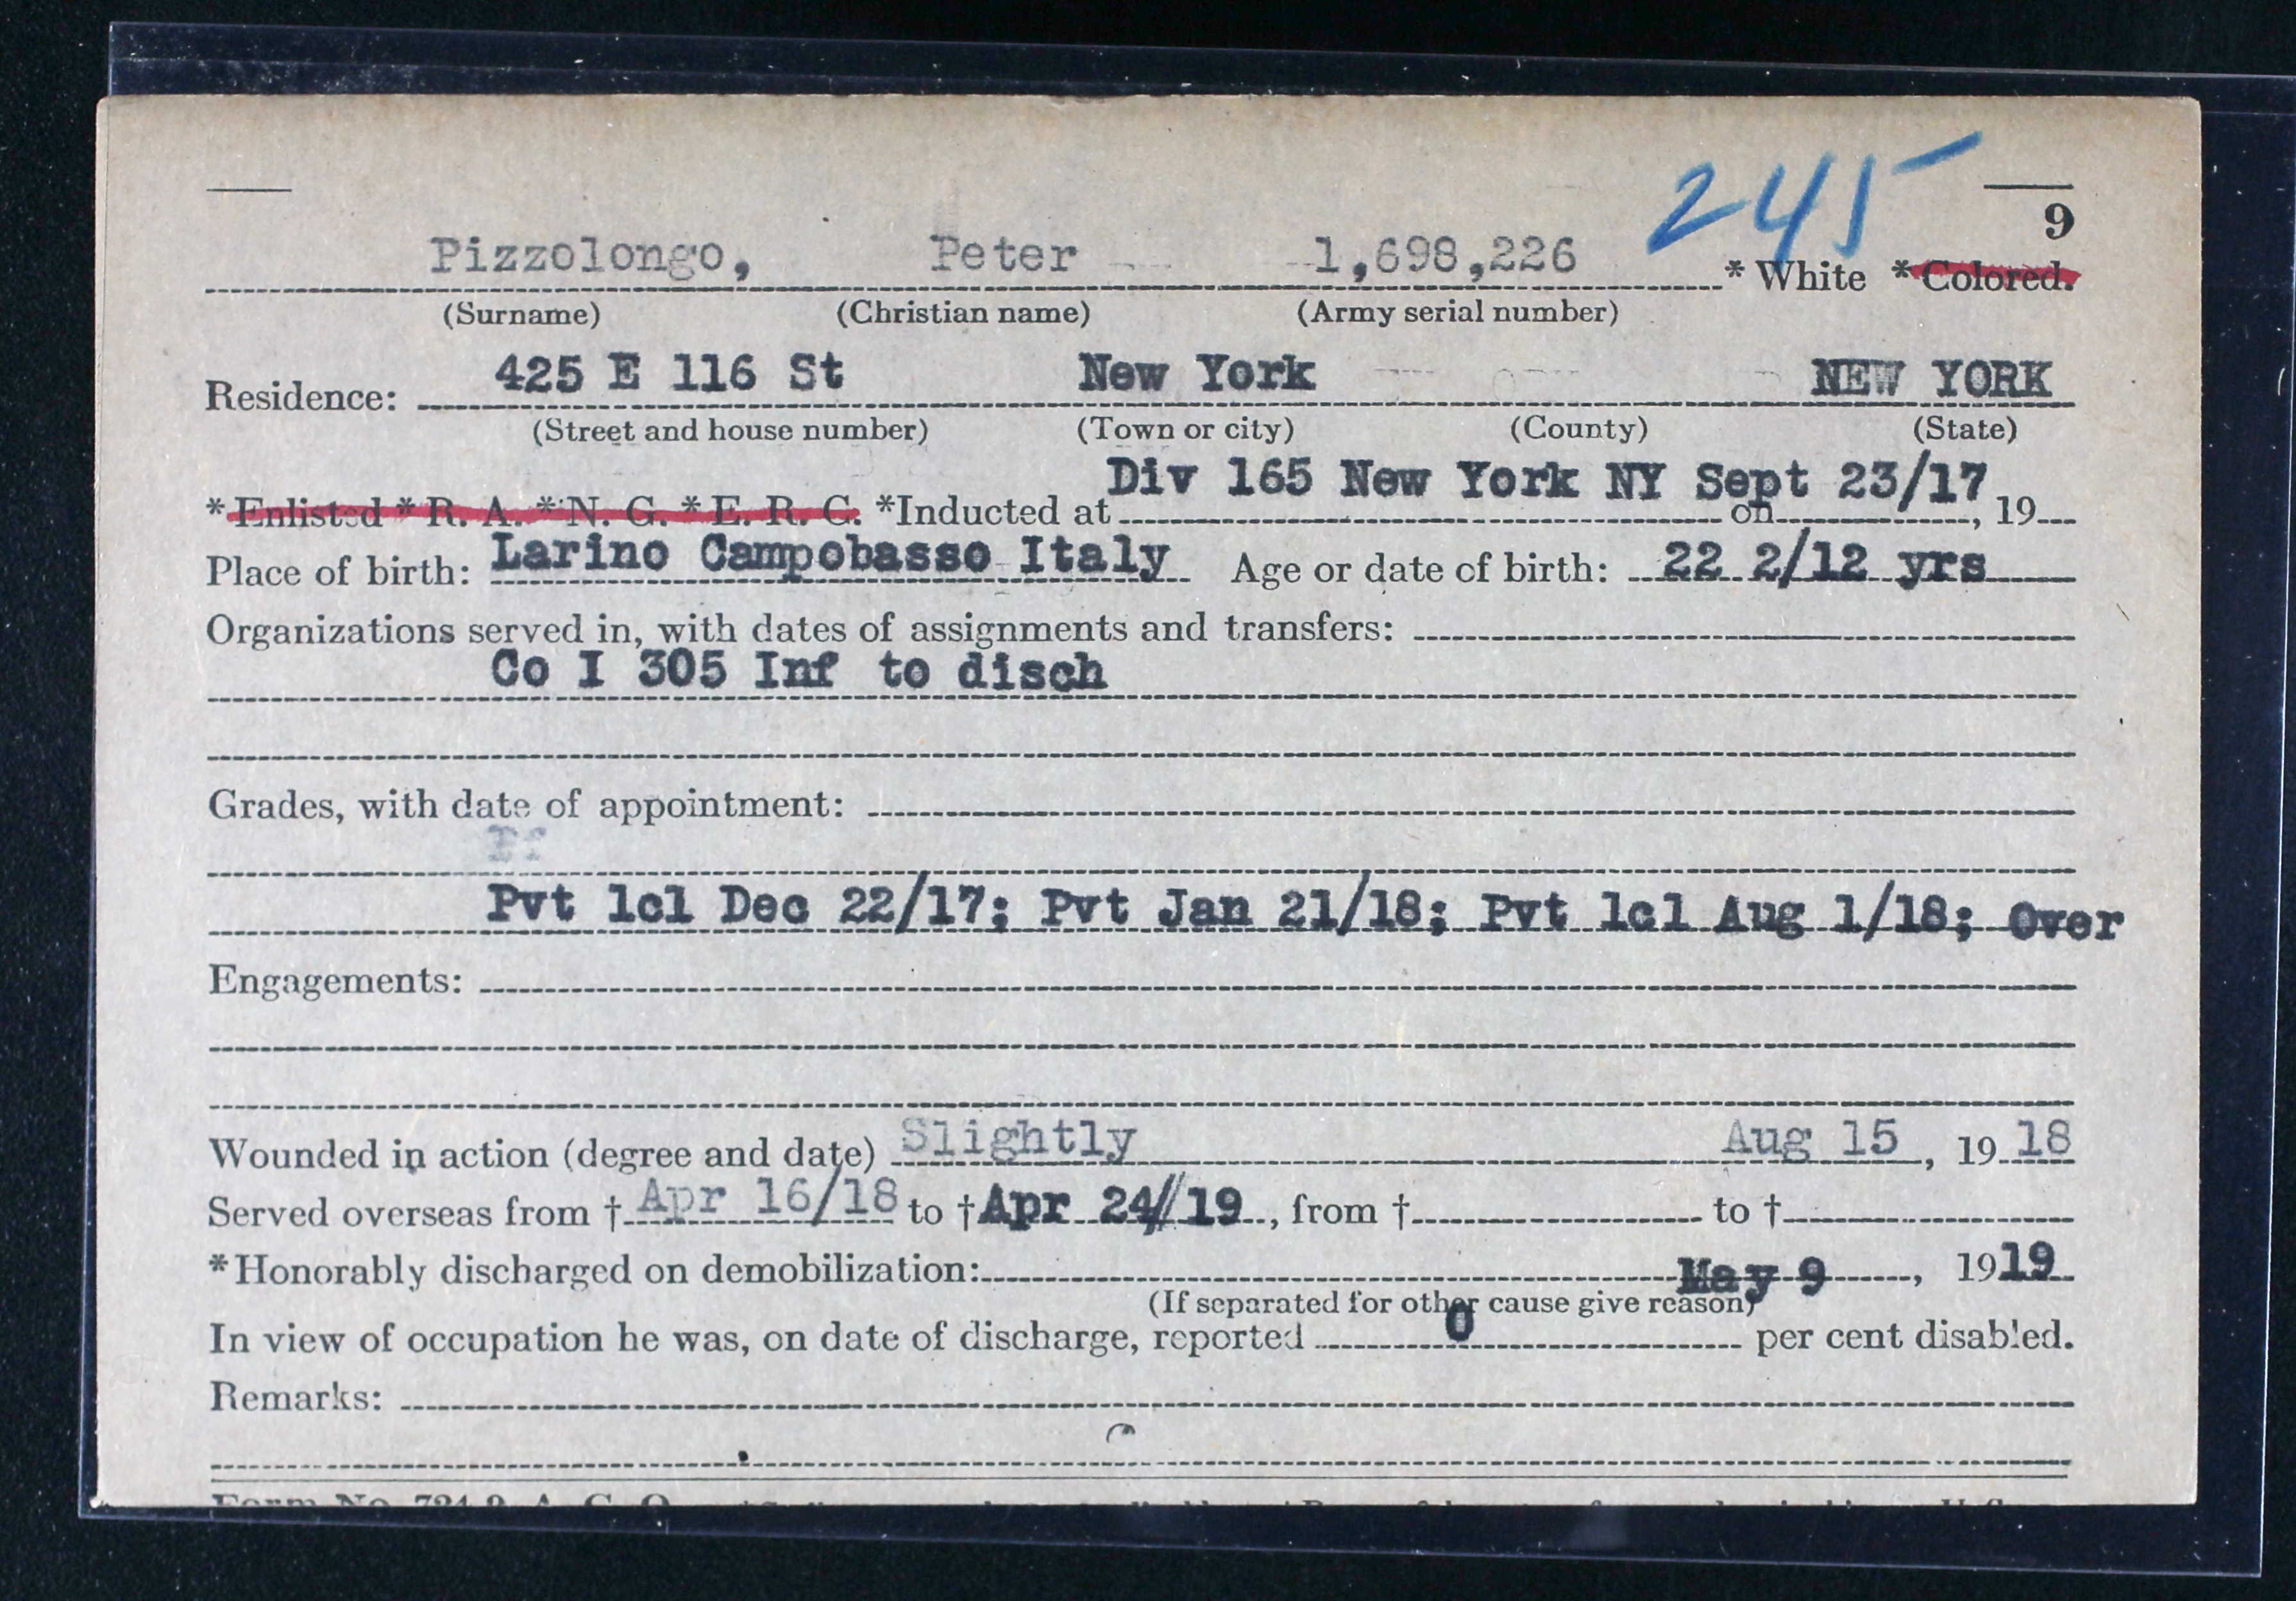 245
9
Pizzolongo, Peter 1,698,226 * White * Colored.
(Surname) (Christian name) (Army serial number)
Residence: 425 E 116 St New York NEW YORK
(Street and house number) (Town or city) (County) (State)
* Enlisted * R. A. * N. G. * E. R. C. *Inducted at Div 165 New York NY on Sept 23/17, 19
Place of birth: Larino Campobasso Italy Age or date of birth: 22 2/12 yrs
Organizations served in, with dates of assignments and transfers:
Co I 305 Inf to disch
Grades, with date of appointment:
Pvt 1cl Dec 22/17; Pvt Jan 21/18; Pvt 1cl Aug 1/18; Over
Engagements:
Wounded in action (degree and date) Slightly Aug 15, 19 18
Served overseas from † Apr 16/18 to † Apr 24//19, from † to †
* Honorably discharged on demobilization: May 9, 1919
(If separated for other cause give reason)
In view of occupation he was, on date of discharge, reported 0 per cent disabled.
Remarks:
Form No. 724-9, A. G. O.